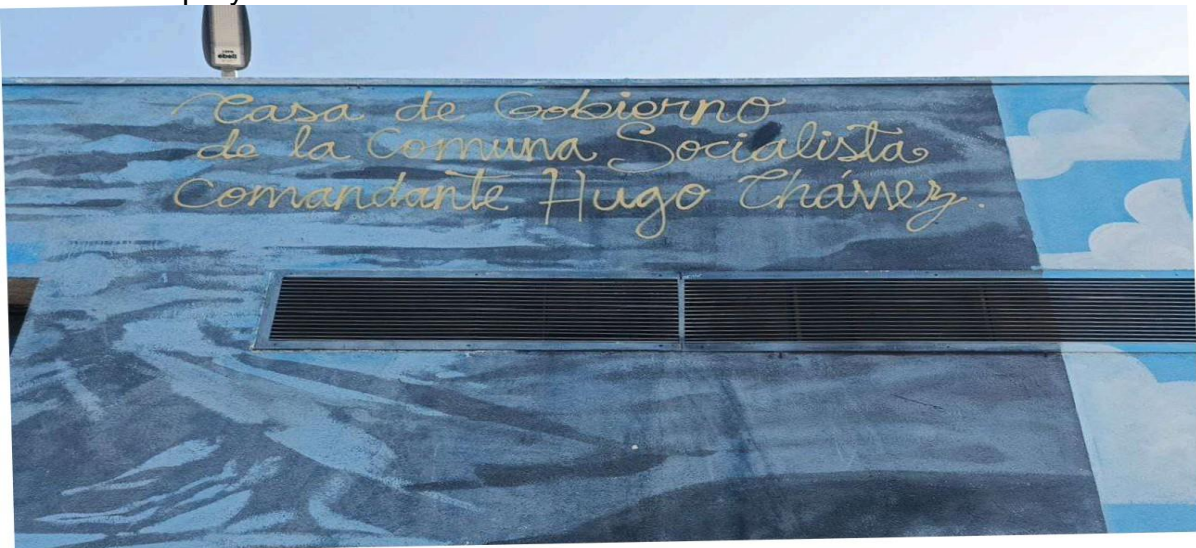 Casa de Gobierno
de la Comuna Socialista
Comandante Hugo Chávez.